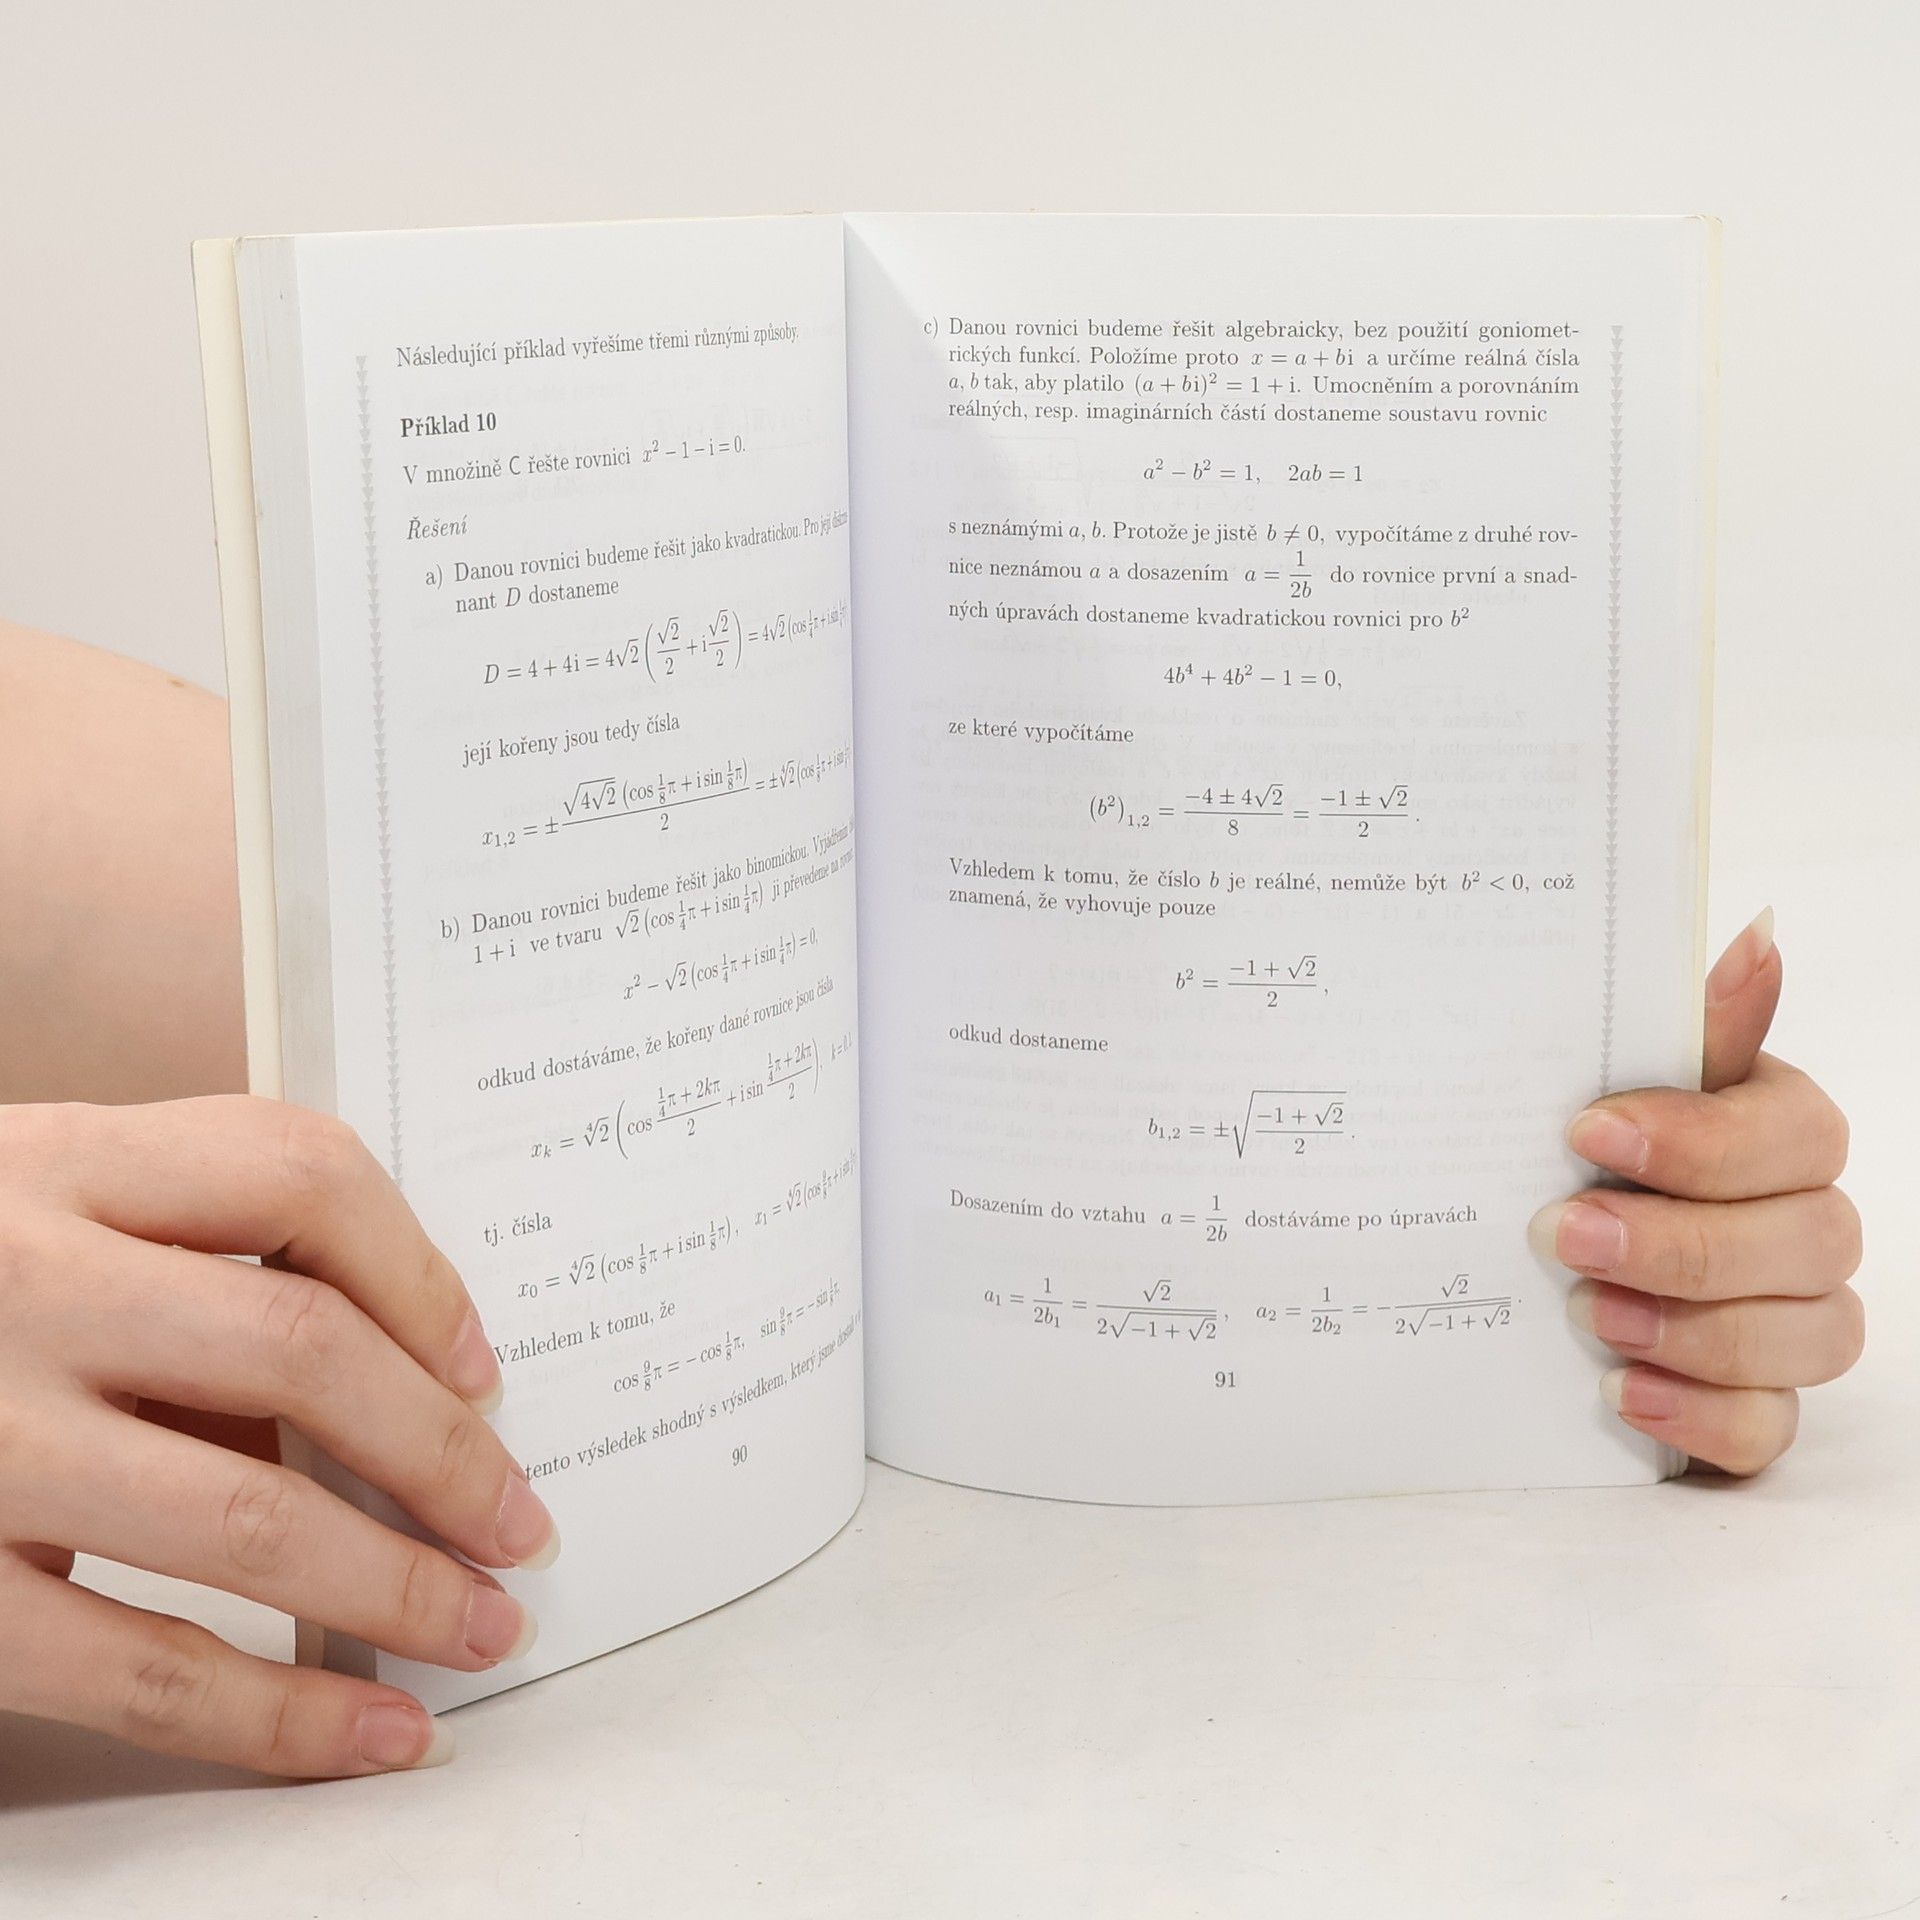 Následující příklad vyřešíme třemi různými způsoby.
Příklad 10
V množině C řešte rovnici x² − 1 − i = 0.
Řešení
a) Danou rovnici budeme řešit jako kvadratickou. Pro její
nant D dostaneme
D = 4 + 4i = 4√2 (√2/2 + i √2/2) = 4√2 (cos 1/4 π + i sin
její kořeny jsou tedy čísla
x₁,₂ = ± √(4√2) (cos 1/8 π + i sin 1/8 π) / 2 = ± ⁴√2 (cos 1/8 π + i sin
b) Danou rovnici budeme řešit jako binomickou. Vyjádřením
1 + i ve tvaru √2 (cos 1/4 π + i sin 1/4 π) ji převedeme na
x² − √2 (cos 1/4 π + i sin 1/4 π) = 0,
odkud dostáváme, že kořeny dané rovnice jsou čísla
xₖ = ⁴√2 (cos (1/4 π + 2kπ)/2 + i sin (1/4 π + 2kπ)/2), k = 0, 1,
tj. čísla
x₀ = ⁴√2 (cos 1/8 π + i sin 1/8 π), x₁ = ⁴√2 (cos 9/8 π + i sin
Vzhledem k tomu, že
cos 9/8 π = − cos 1/8 π, sin 9/8 π = − sin 1/8 π,
tento výsledek shodný s výsledkem, který jsme
90
c) Danou rovnici budeme řešit algebraicky, bez použití goniomet-
rických funkcí. Položíme proto x = a + bi a určíme reálná čísla
a, b tak, aby platilo (a + bi)² = 1 + i. Umocněním a porovnáním
reálných, resp. imaginárních částí dostaneme soustavu rovnic
a² − b² = 1, 2ab = 1
s neznámými a, b. Protože je jistě b ≠ 0, vypočítáme z druhé rov-
nice neznámou a a dosazením a = 1/2b do rovnice první a snad-
ných úpravách dostaneme kvadratickou rovnici pro b²
4b⁴ + 4b² − 1 = 0,
ze které vypočítáme
(b²)₁,₂ = (−4 ± 4√2)/8 = (−1 ± √2)/2 .
Vzhledem k tomu, že číslo b je reálné, nemůže být b² < 0, což
znamená, že vyhovuje pouze
b² = (−1 + √2)/2 ,
odkud dostaneme
b₁,₂ = ± √((−1 + √2)/2) .
Dosazením do vztahu a = 1/2b dostáváme po úpravách
a₁ = 1/2b₁ = √2/(2√(−1 + √2)) , a₂ = 1/2b₂ = − √2/(2√(−1 + √2)) .
91